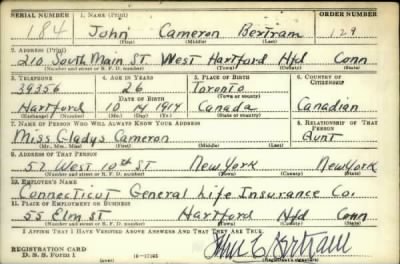 SERIAL NUMBER 1. NAME (Print) ORDER NUMBER
184 John Cameron Bertram 129
(First) (Middle) (Last)
2. ADDRESS (Print)
210 South Main St. West Hartford Hfd Conn
(Number and street or R. F. D. number) (Town) (County) (State)
3. TELEPHONE 4. AGE IN YEARS 5. PLACE OF BIRTH 6. COUNTRY OF CITIZENSHIP
39356 26 Toronto
DATE OF BIRTH (Town or county)
Hartford 10 14 1914 Canada Canadian
(Exchange) (Number) (Mo.) (Day) (Yr.) (State or country)
7. NAME OF PERSON WHO WILL ALWAYS KNOW YOUR ADDRESS 8. RELATIONSHIP OF THAT PERSON
Miss Gladys Cameron Aunt
(Mr., Mrs., Miss) (First) (Middle) (Last)
9. ADDRESS OF THAT PERSON
57 West 10th St New York New York
(Number and street or R. F. D. number) (Town) (County) (State)
10. EMPLOYER'S NAME
Connecticut General Life Insurance Co.
11. PLACE OF EMPLOYMENT OR BUSINESS
55 Elm St Hartford Hfd Conn
(Number and street or R. F. D. number) (Town) (County) (State)
I AFFIRM THAT I HAVE VERIFIED ABOVE ANSWERS AND THAT THEY ARE TRUE.
REGISTRATION CARD
D. S. S. Form 1 16-17105 John C Bertram
(Registrant's signature)